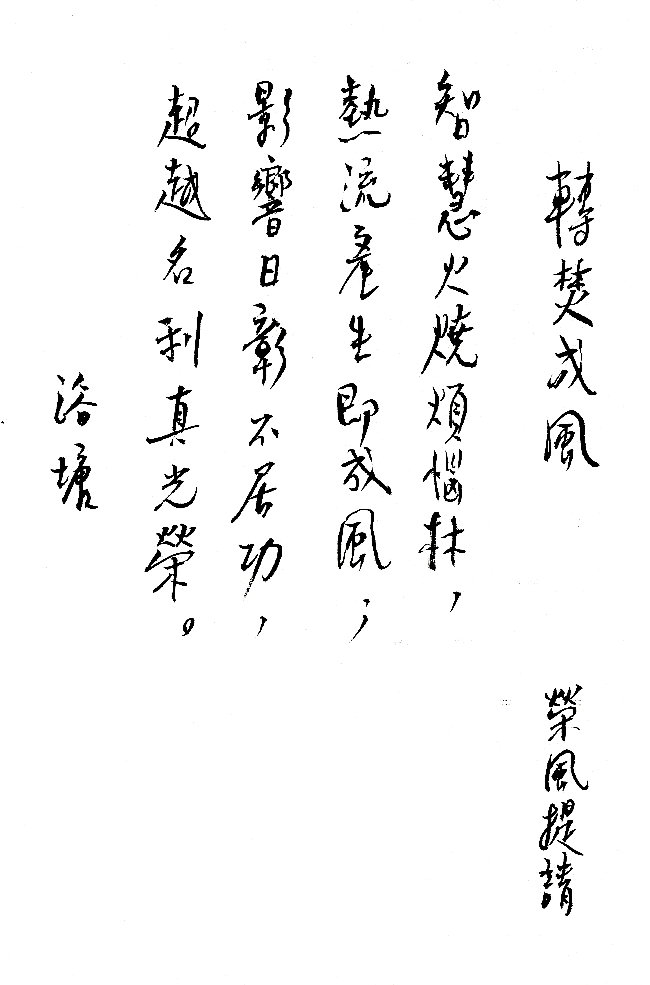 轉焚成風
榮風提請
智慧火燒煩惱林，
熱流產生即成風；
影響日彰不居功，
超越名利真光榮。
浴塘